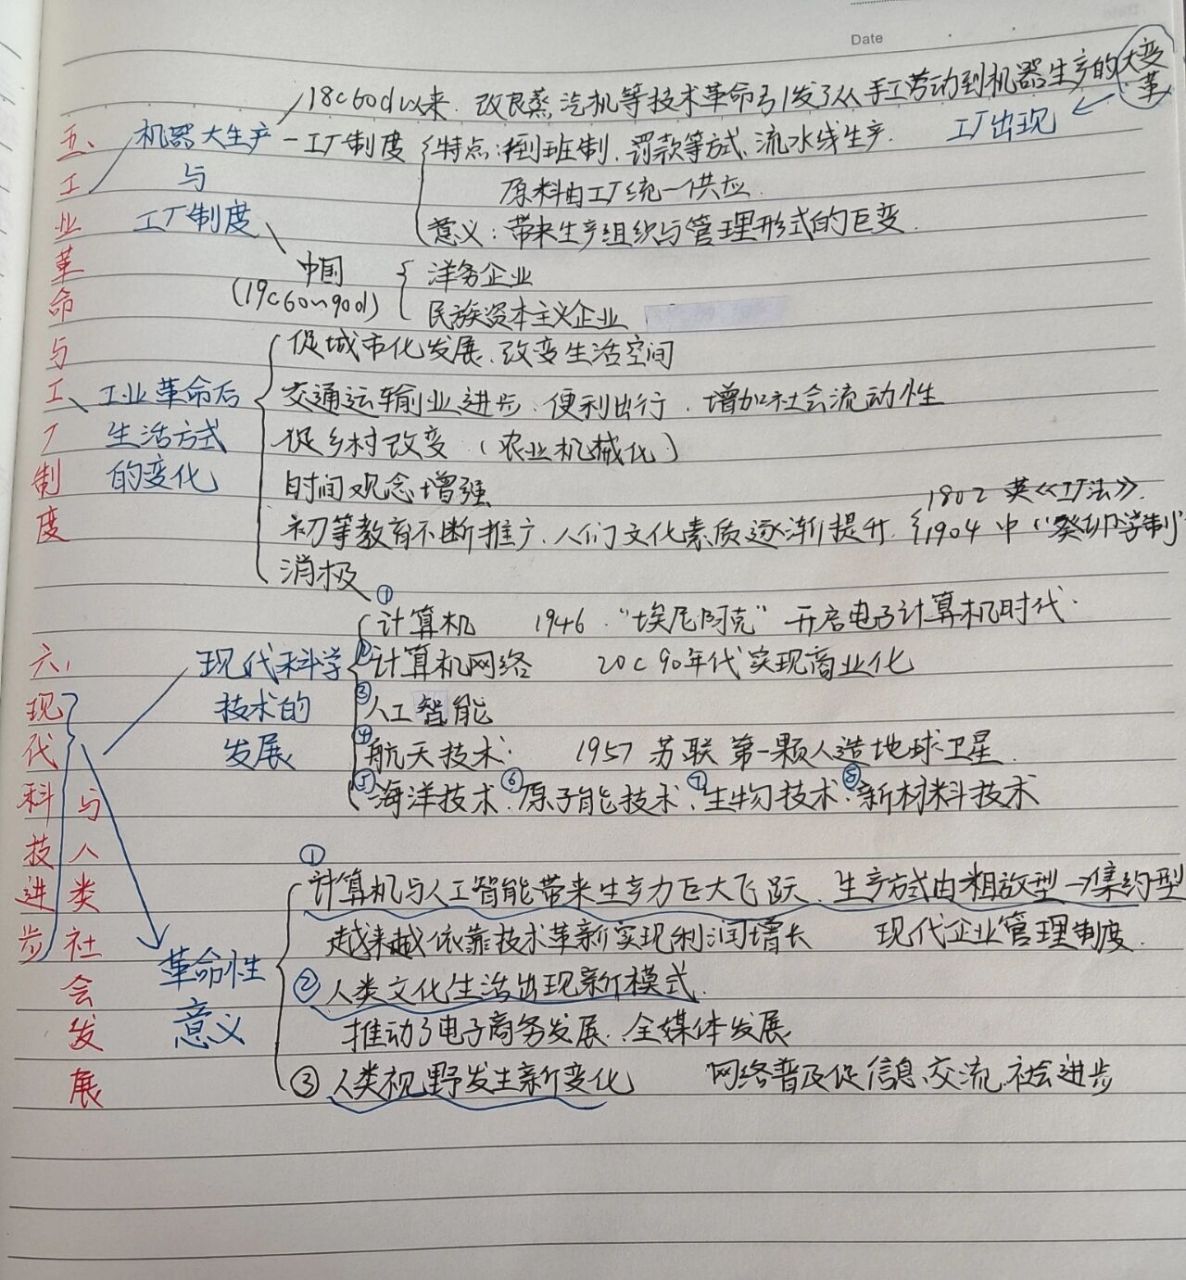 Date
18c60d以来．改良蒸汽机等技术革命引发了从手工劳动到机器生产的大变革
工厂出现
五、工业革命与工厂制度
机器大生产与工厂制度
工厂制度
特点：倒班制、罚款等方式、流水线生产．
原料由工厂统一供应．
意义：带来生产组织与管理形式的巨变．
中国
(19c60~90d)
洋务企业
民族资本主义企业
工业革命后生活方式的变化
促城市化发展、改变生活空间
交通运输业进步、便利出行．增加社会流动性
促乡村改变（农业机械化）
时间观念增强
初等教育不断推广、人们文化素质逐渐提升
1802 英《工厂法》．
1904 中“癸卯学制”
消极
六、现代科技进步与人类社会发展
现代科学技术的发展
①计算机 1946．“埃尼阿克”开启电子计算机时代．
②计算机网络 20c90年代实现商业化
③人工智能
④航天技术． 1957 苏联 第一颗人造地球卫星．
⑤海洋技术．⑥原子能技术、⑦生物技术．⑧新材料技术
革命性意义
①计算机与人工智能带来生产力巨大飞跃．生产方式由粗放型→集约型
越来越依靠技术革新实现利润增长 现代企业管理制度．
②人类文化生活出现新模式．
推动了电子商务发展．全媒体发展
③人类视野发生新变化 网络普及促信息交流、社会进步